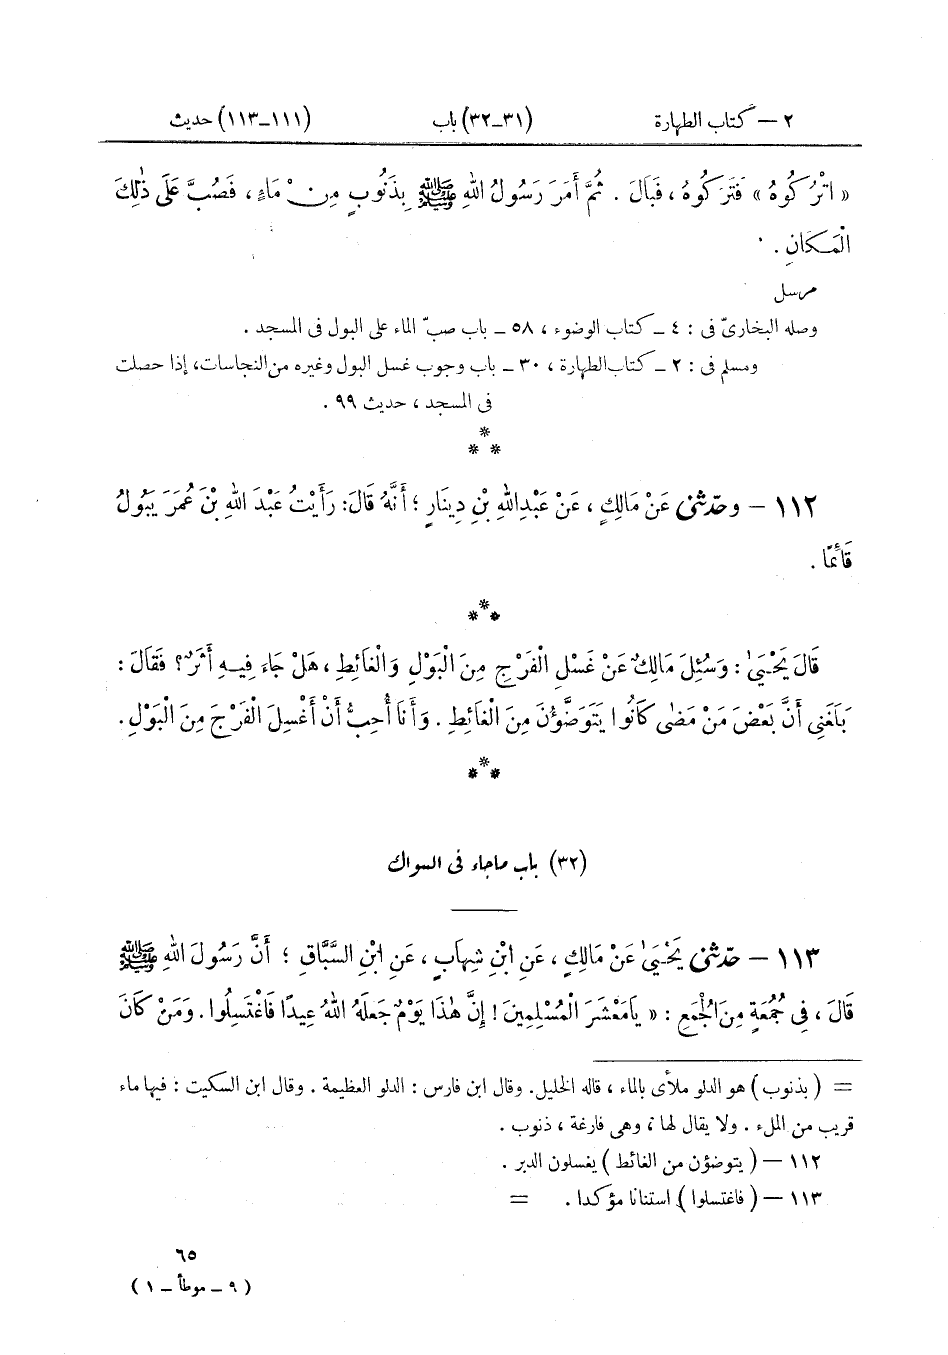 ٢ – كتاب الطهارة (٣١–٣٢) باب (١١١–١١٣) حديث
« اتْرُكُوهُ » فَتَرَكُوهُ ، فَبَالَ . ثُمَّ أَمَرَ رَسُولُ اللهِ ﷺ بِذَنُوبٍ مِنْ مَاءٍ ، فَصُبَّ عَلَى ذٰلِكَ
الْمَكَانِ .
مرسل
وصله البخارىّ فى : ٤ – كتاب الوضوء ، ٥٨ – باب صبّ الماء على البول فى المسجد .
ومسلم فى : ٢ – كتاب الطهارة ، ٣٠ – باب وجوب غسل البول وغيره من النجاسات، إذا حصلت
فى المسجد ، حديث ٩٩ .
*
* *
١١٢ – وحدّثنى عَنْ مَالِكٍ ، عَنْ عَبْدِ اللهِ بْنِ دِينَارٍ ؛ أَنَّهُ قَالَ: رَأَيْتُ عَبْدَ اللهِ بْنَ عُمَرَ يَبُولُ
قَائمًا .
*
* *
قَالَ يَحْيَىٰ : وَسُئِلَ مَالِكٌ عَنْ غَسْلِ الْفَرْجِ مِنَ الْبَوْلِ وَالْغَائِطِ ، هَلْ جَاءَ فِيهِ أَثَرٌ؟ فَقَالَ :
بَلَغَنِى أَنَّ بَعْضَ مَنْ مَضَى كَانُوا يَتَوَضَّؤُنَ مِنَ الْغَائِطِ . وَأَنَا أُحِبُّ أَنْ أَغْسِلَ الْفَرْجَ مِنَ الْبَوْلِ .
*
* *
(٣٢) باب ماجاء فى السواك
١١٣ – حدّثنى يَحْيَىٰ عَنْ مَالِكٍ ، عَنِ ابْنِ شِهَابٍ ، عَنِ ابْنِ السَّبَّاقِ ؛ أَنَّ رَسُولَ اللهِ ﷺ
قَالَ ، فِى جُمُعَةٍ مِنَ الْجُمَعِ : « يَامَعْشَرَ الْمُسْلِمِينَ ! إِنَّ هٰذَا يَوْمٌ جَعَلَهُ اللهُ عِيدًا فَاغْتَسِلُوا . وَمَنْ كَانَ
= ( بذنوب ) هو الدلو ملأى بالماء ، قاله الخليل. وقال ابن فارس : الدلو العظيمة . وقال ابن السكيت : فيها ماء
قريب من الملء . ولا يقال لها ، وهى فارغة ، ذنوب .
١١٢ – ( يتوضؤن من الغائط ) يغسلون الدبر .
١١٣ – ( فاغتسلوا ) استنانا مؤكدا . =
٦٥
( ٩ – موطأ – ١ )